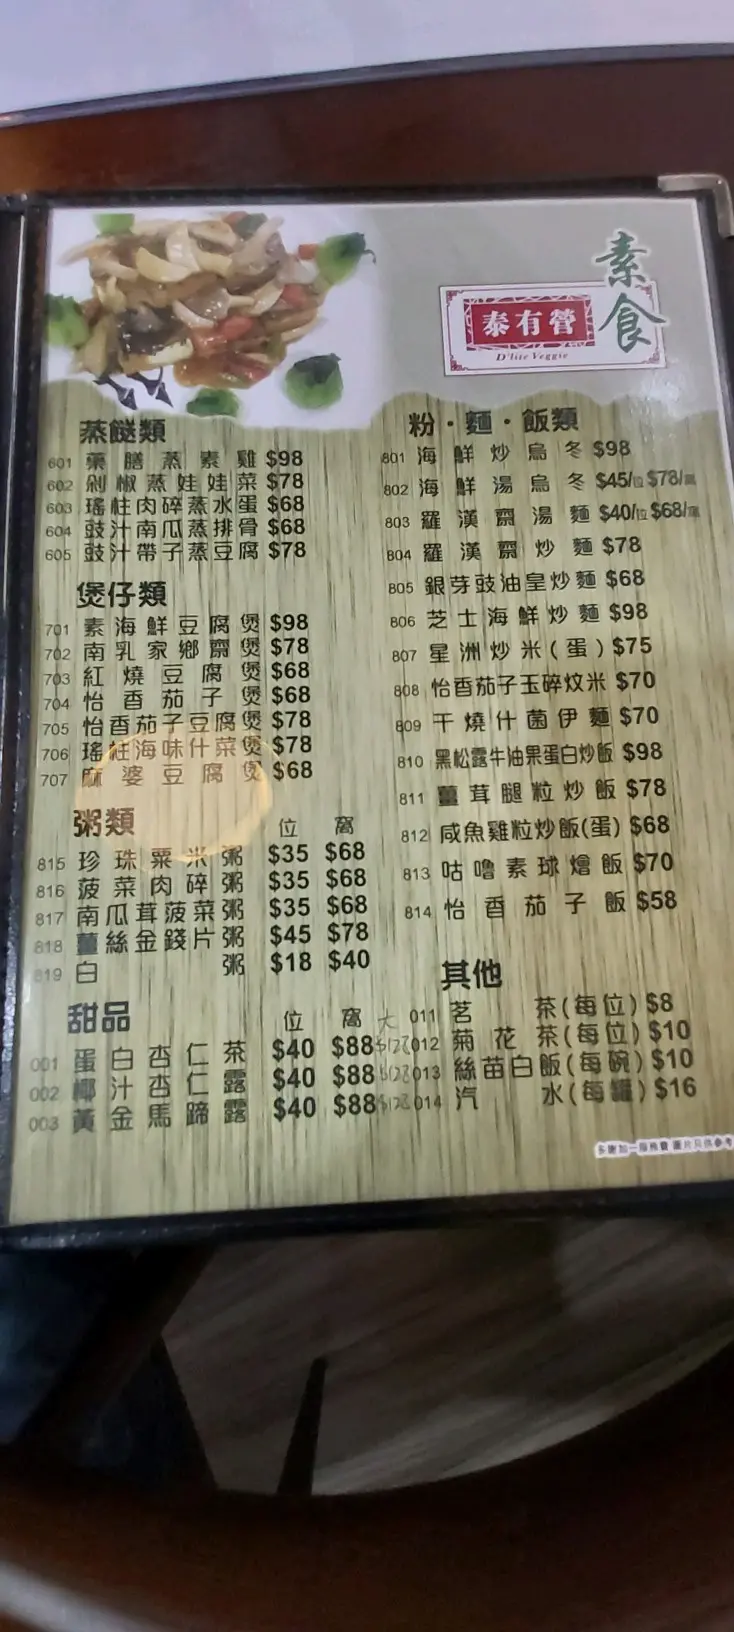 素食
泰有營
D'lite Veggie
蒸餸類
601 藥膳蒸素雞 $98
602 剁椒蒸娃娃菜 $78
603 瑤柱肉碎蒸水蛋 $68
604 豉汁南瓜蒸排骨 $68
605 豉汁帶子蒸豆腐 $78
煲仔類
701 素海鮮豆腐煲 $98
702 南乳家鄉齋煲 $78
703 紅燒豆腐煲 $68
704 怡香茄子煲 $68
705 怡香茄子豆腐煲 $78
706 瑤柱海味什菜煲 $78
707 麻婆豆腐煲 $68
粥類 位 窩
815 珍珠粟米粥 $35 $68
816 菠菜肉碎粥 $35 $68
817 南瓜茸菠菜粥 $35 $68
818 薑絲金錢片粥 $45 $78
819 白粥 $18 $40
甜品 位 窩 大
001 蛋白杏仁茶 $40 $88 $128
002 椰汁杏仁露 $40 $88 $128
003 黃金馬蹄露 $40 $88 $128
粉・麵・飯類
801 海鮮炒烏冬 $98
802 海鮮湯烏冬 $45/位 $78/窩
803 羅漢齋湯麵 $40/位 $68/窩
804 羅漢齋炒麵 $78
805 銀芽豉油皇炒麵 $68
806 芝士海鮮炒麵 $98
807 星洲炒米(蛋) $75
808 怡香茄子玉碎炆米 $70
809 干燒什菌伊麵 $70
810 黑松露牛油果蛋白炒飯 $98
811 薑茸腿粒炒飯 $78
812 咸魚雞粒炒飯(蛋) $68
813 咕嚕素球燴飯 $70
814 怡香茄子飯 $58
其他
011 茗茶(每位) $8
012 菊花茶(每位) $10
013 絲苗白飯(每碗) $10
014 汽水(每罐) $16
多謝加一服務費 圖片只供參考